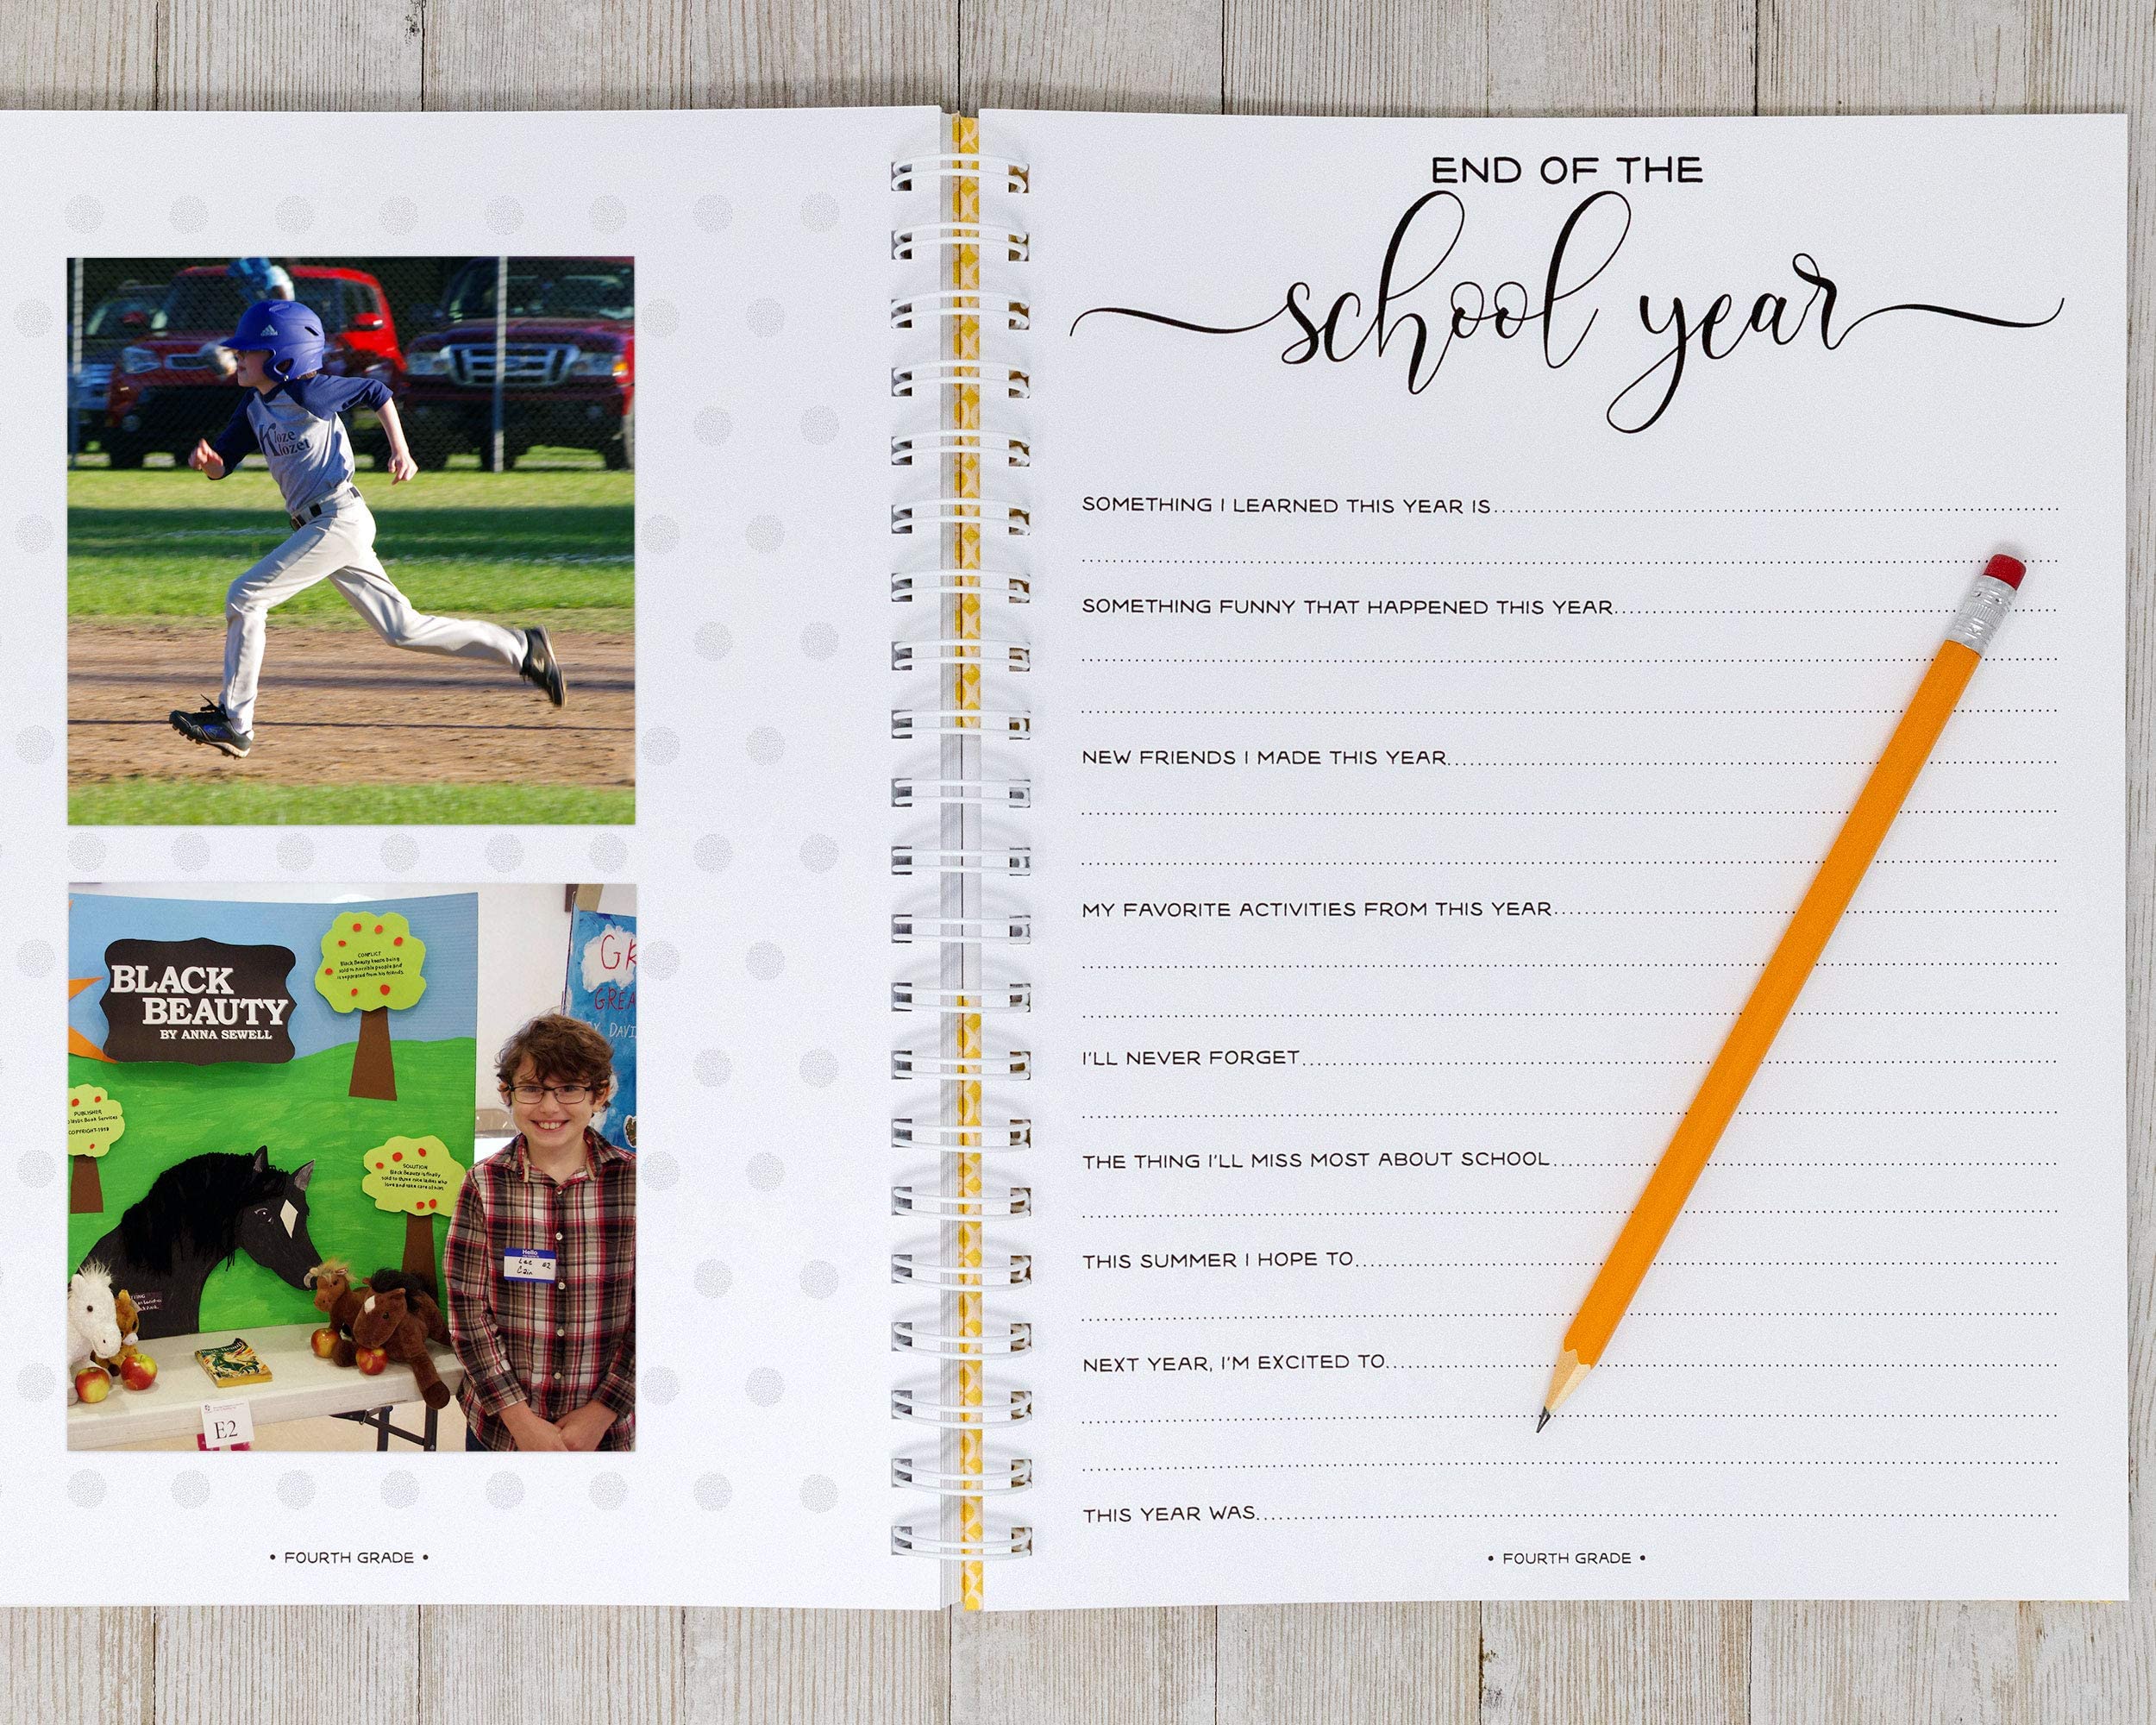 Kloze
Klozet
BLACK
BEAUTY
BY ANNA SEWELL
CONFLICT
Black Beauty keeps being
sold to horrible people and
is separated from his friends.
PUBLISHER
Book Services
COPYRIGHT-1919
SOLUTION
Black Beauty is finally
sold to three nice ladies who
love and take care of him.
GREA
BY DAVI
Hello
E2
• FOURTH GRADE •
END OF THE
school year
SOMETHING I LEARNED THIS YEAR IS
SOMETHING FUNNY THAT HAPPENED THIS YEAR
NEW FRIENDS I MADE THIS YEAR
MY FAVORITE ACTIVITIES FROM THIS YEAR
I'LL NEVER FORGET
THE THING I'LL MISS MOST ABOUT SCHOOL
THIS SUMMER I HOPE TO
NEXT YEAR, I'M EXCITED TO
THIS YEAR WAS
• FOURTH GRADE •